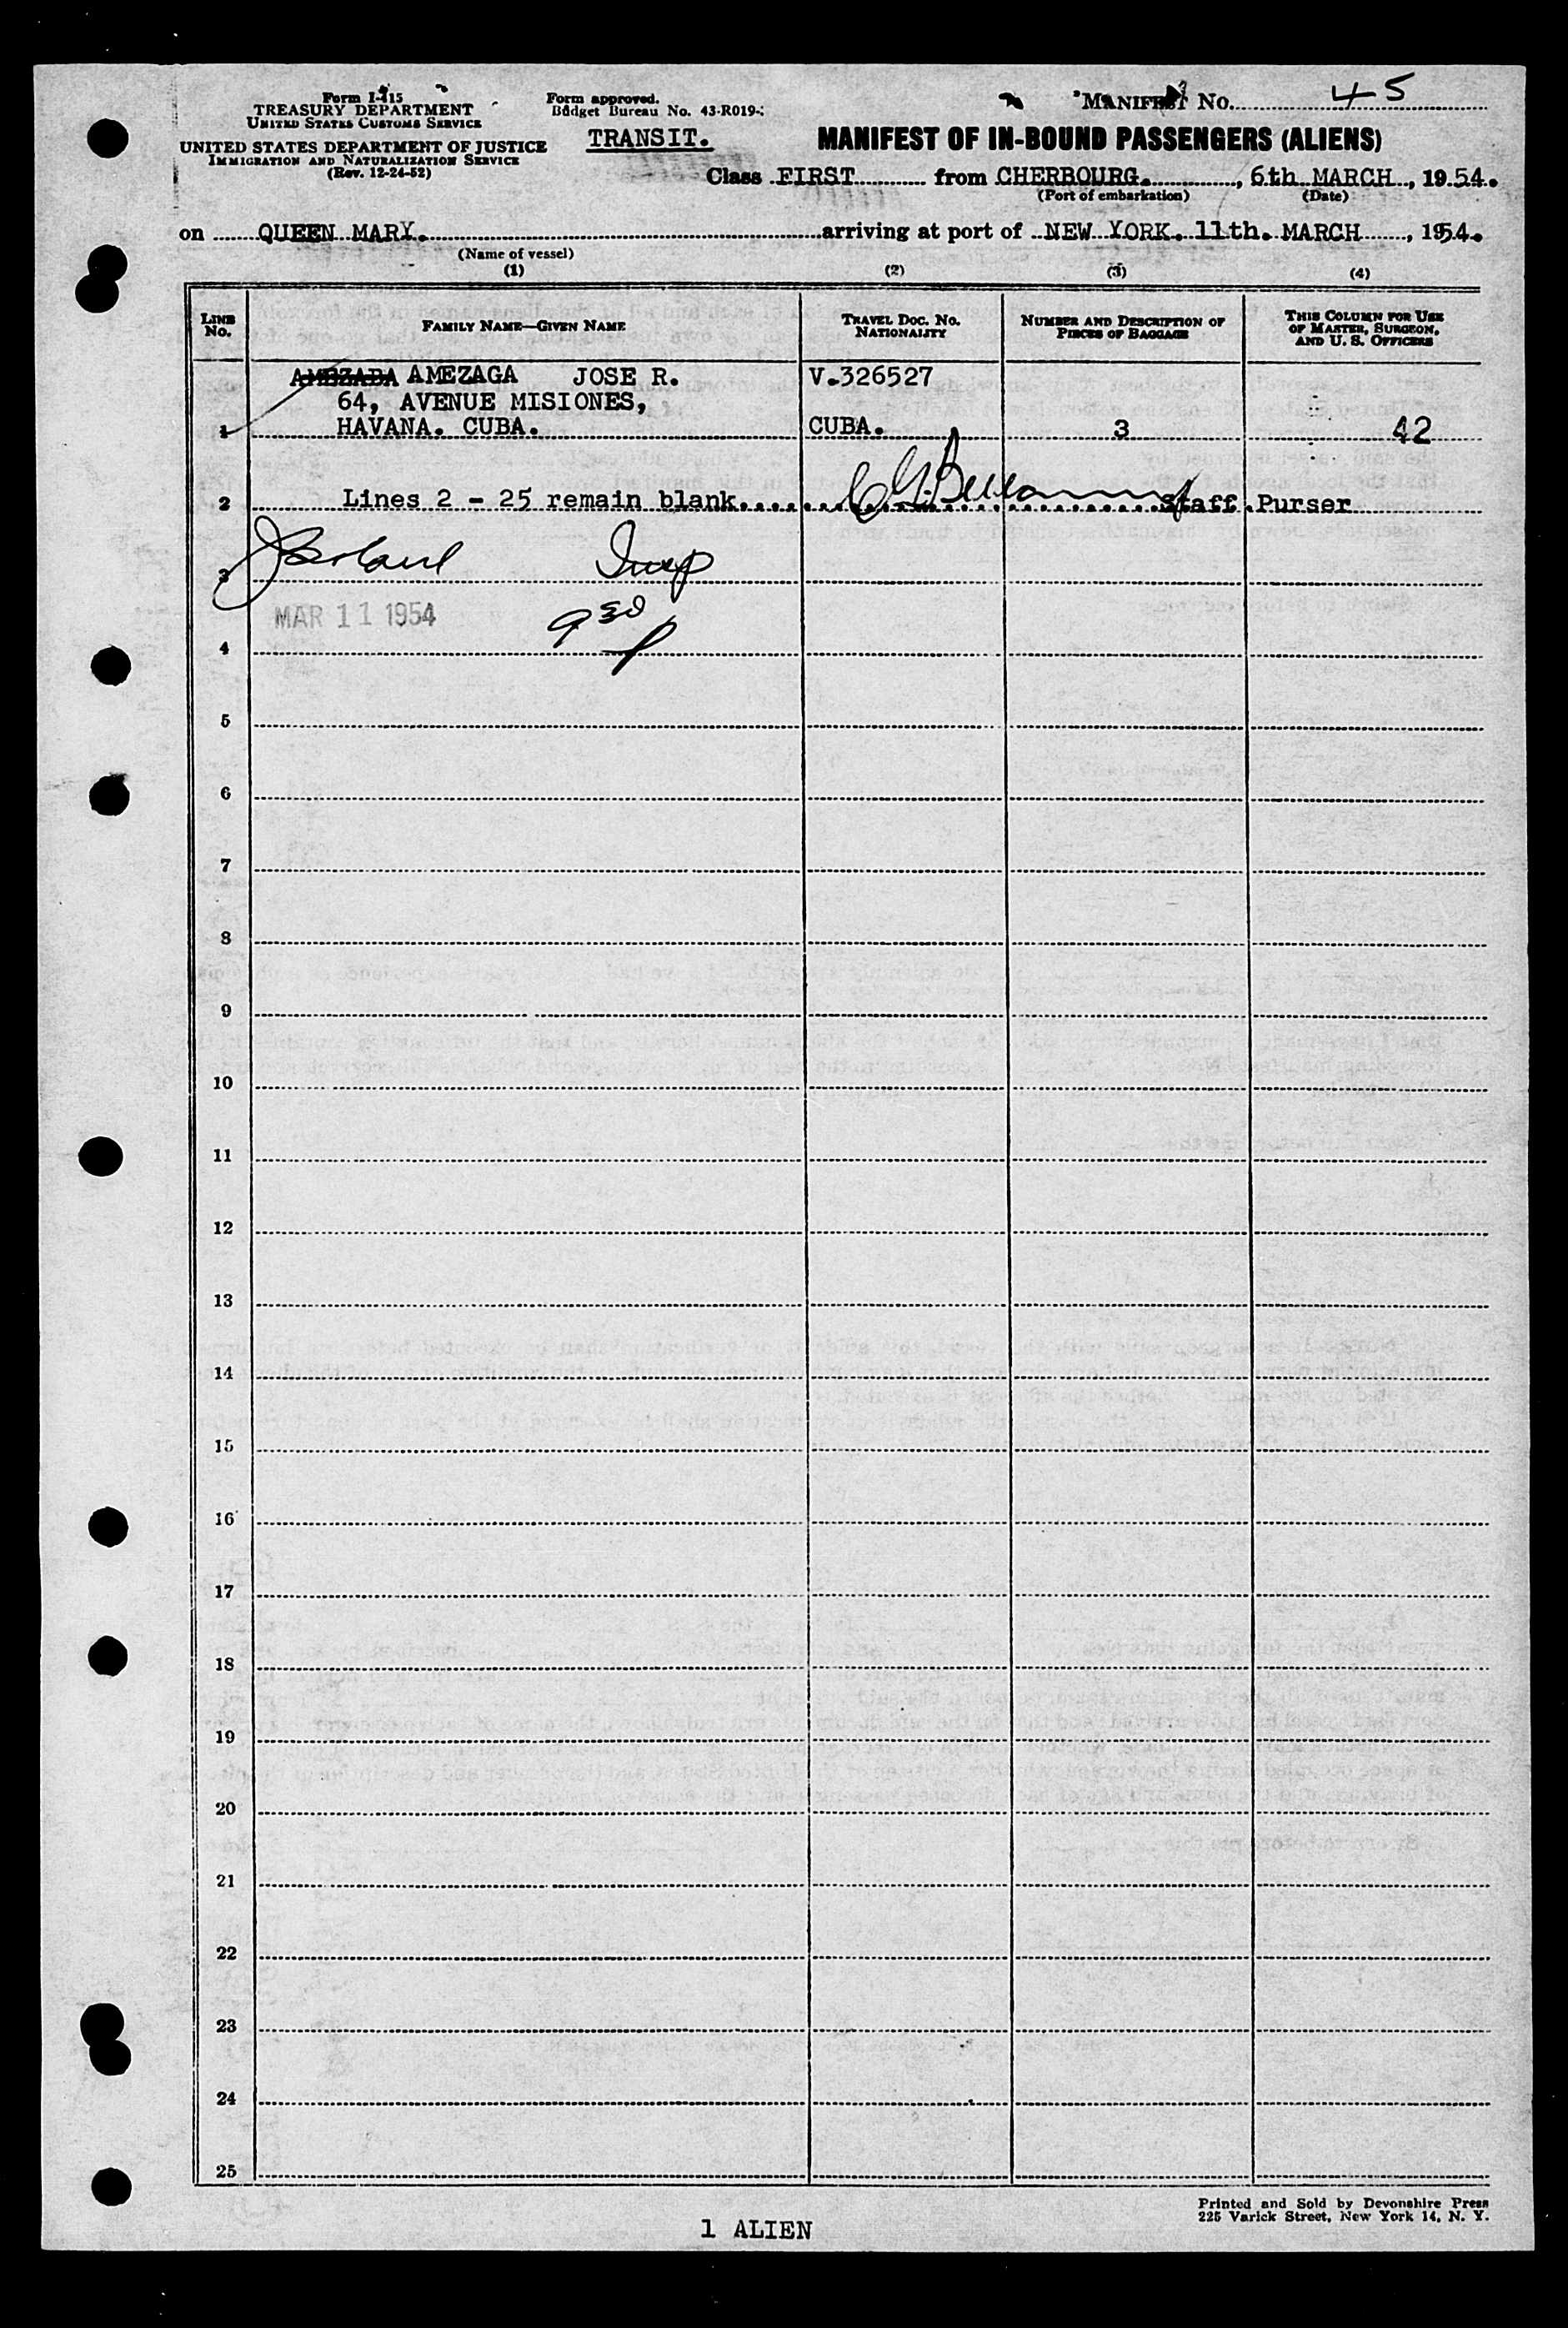 Form I-415
TREASURY DEPARTMENT
UNITED STATES CUSTOMS SERVICE
UNITED STATES DEPARTMENT OF JUSTICE
IMMIGRATION AND NATURALIZATION SERVICE
(Rev. 12-24-52)
Form approved.
Budget Bureau No. 43-R019-
TRANSIT.
MANIFEST No. 45
MANIFEST OF IN-BOUND PASSENGERS (ALIENS)
Class FIRST from CHERBOURG., 6th MARCH, 1954.
(Port of embarkation) (Date)
on QUEEN MARY. arriving at port of NEW YORK. 11th. MARCH, 1954.
(Name of vessel)
(1) (2) (3) (4)
LINE No. FAMILY NAME—GIVEN NAME TRAVEL DOC. No. NATIONALITY NUMBER AND DESCRIPTION OF PIECES OF BAGGAGE THIS COLUMN FOR USE OF MASTER, SURGEON, AND U. S. OFFICERS
AMEZAGA JOSE R. V.326527
64, AVENUE MISIONES,
1 HAVANA. CUBA. CUBA. 3 42
2 Lines 2 - 25 remain blank. Staff Purser
3
MAR 11 1954 9 30
4
5
6
7
8
9
10
11
12
13
14
15
16
17
18
19
20
21
22
23
24
25
Printed and Sold by Devonshire Press
225 Varick Street, New York 14, N. Y.
1 ALIEN